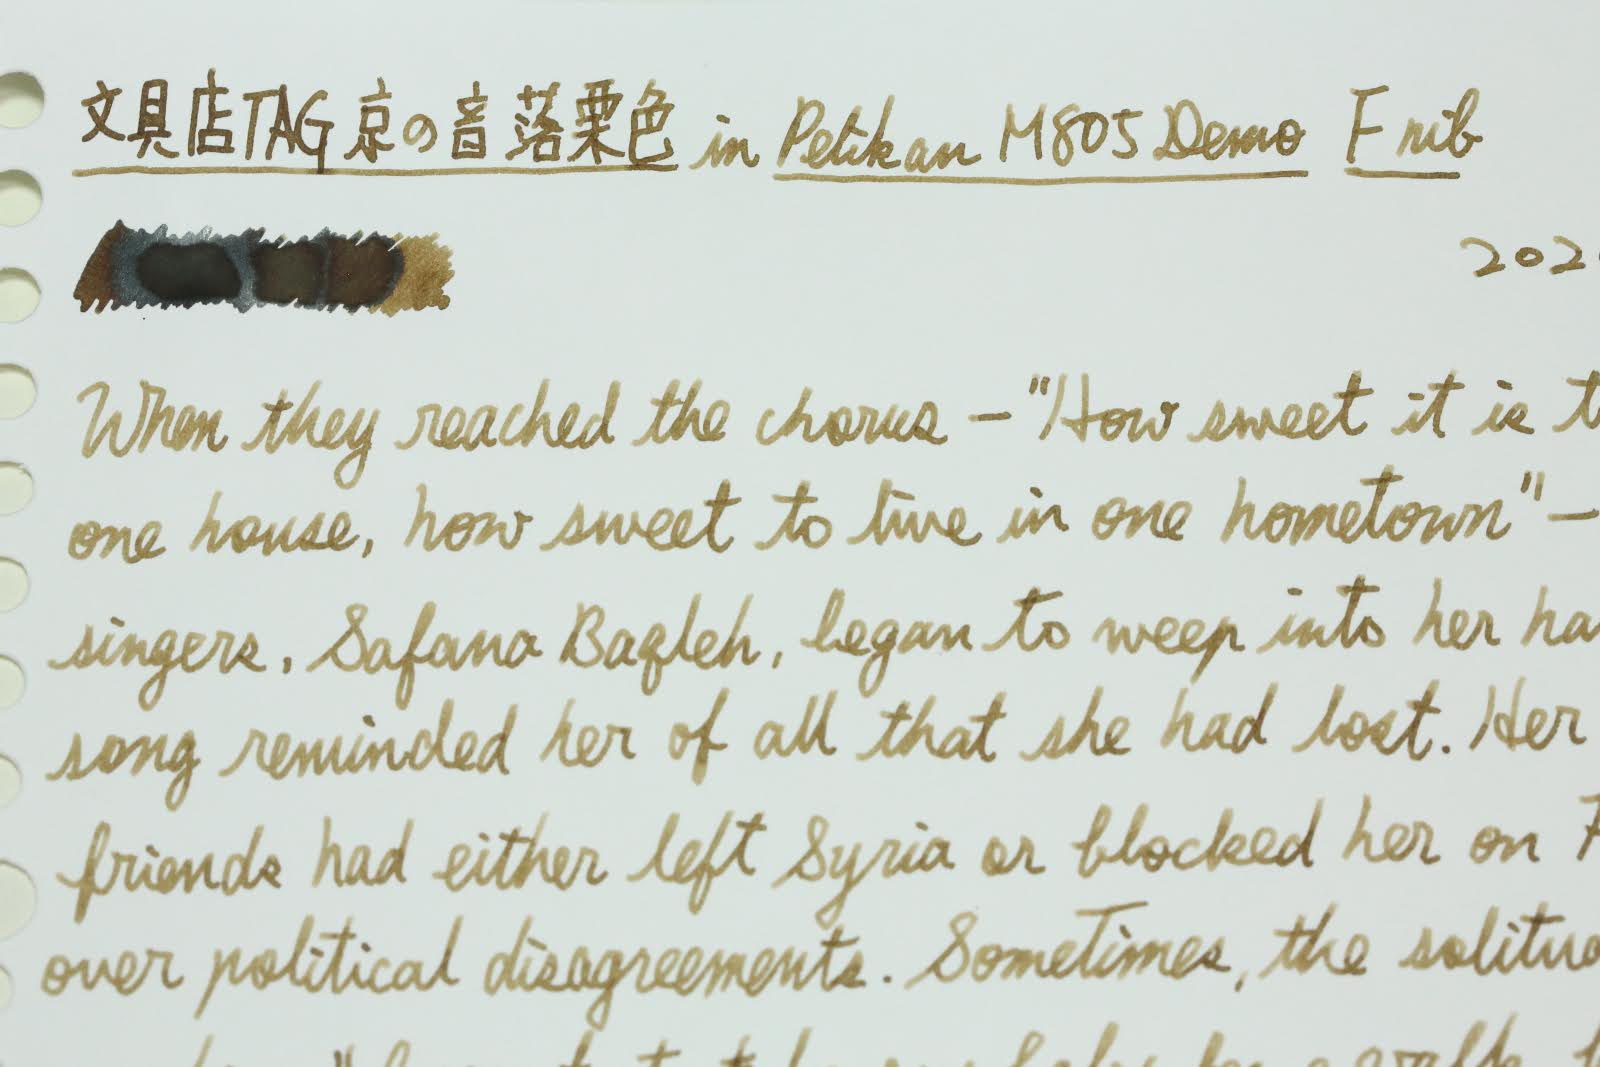 文具店TAG 京の音 落栗色 in Pelikan M805 Demo F nib
202
When they reached the chorus – "How sweet it is t
one house, how sweet to live in one hometown" –
singers, Safana Baqleh, began to weep into her ha
song reminded her of all that she had lost. Her
friends had either left Syria or blocked her on F
over political disagreements. Sometimes, the solitu